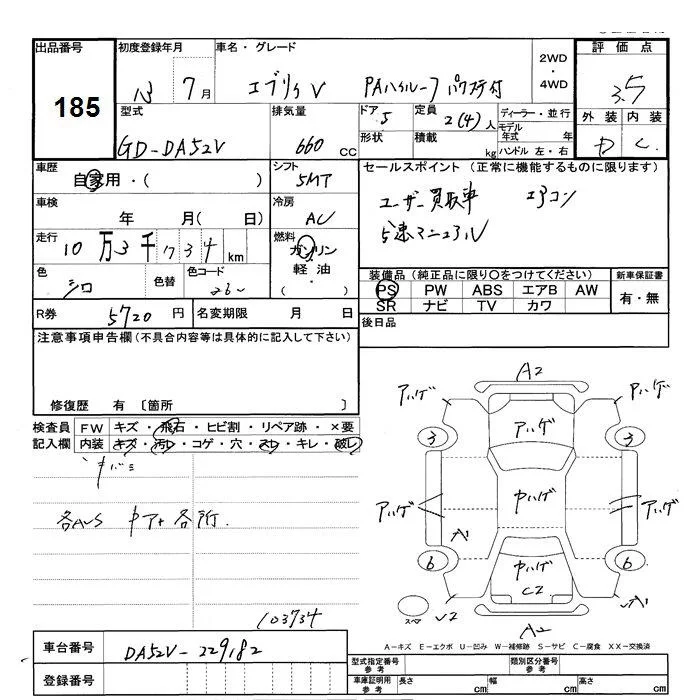 出品番号 初度登録年月 車名・グレード 2WD・4WD 評価点
185 13 7月 エブリィV PAハイルーフ パワステ付 3.5
型式 排気量 ドア 5 定員 2(4)人 ディーラー・並行 外装 内装
GD-DA52V 660 CC 形状 積載 kg モデル年式 年 ハンドル 左・右 D C
車歴 自家用・( ) シフト 5MT セールスポイント (正常に機能するものに限ります)
車検 年 月(日) 冷房 AC ユーザー買取車 エアコン
走行 10万3千734km 燃料 ガソリン 軽油・( ) 5速マニュアル
色 シロ 色替 色コード 26U 装備品 (純正品に限り○をつけてください) 新車保証書
PS PW ABS エアB AW 有・無
SR ナビ TV カワ
R券 5720円 名変期限 月 日 後日品
注意事項申告欄(不具合内容等は具体的に記入して下さい)
修復歴 有 〔箇所 〕
検査員 FW キズ・飛石・ヒビ割・リペア跡・×要
記入欄 内装 キズ・汚レ・コゲ・穴・スレ・キレ・破レ
各所
103734
A2
アハゲ アハゲ
アハゲ
3 3
アハゲ 中ハゲ アハゲ
A1
6 中ハゲ 6
C2
スペア √2 √A1
A2
A-キズ E-エクボ U-凹み W-補修跡 S-サビ C-腐食 XX-交換済
車台番号 DA52V-229182
登録番号
型式指定番号 参考 類別区分番号 参考
車庫証明用 参考 長さ cm 幅 cm 高さ cm